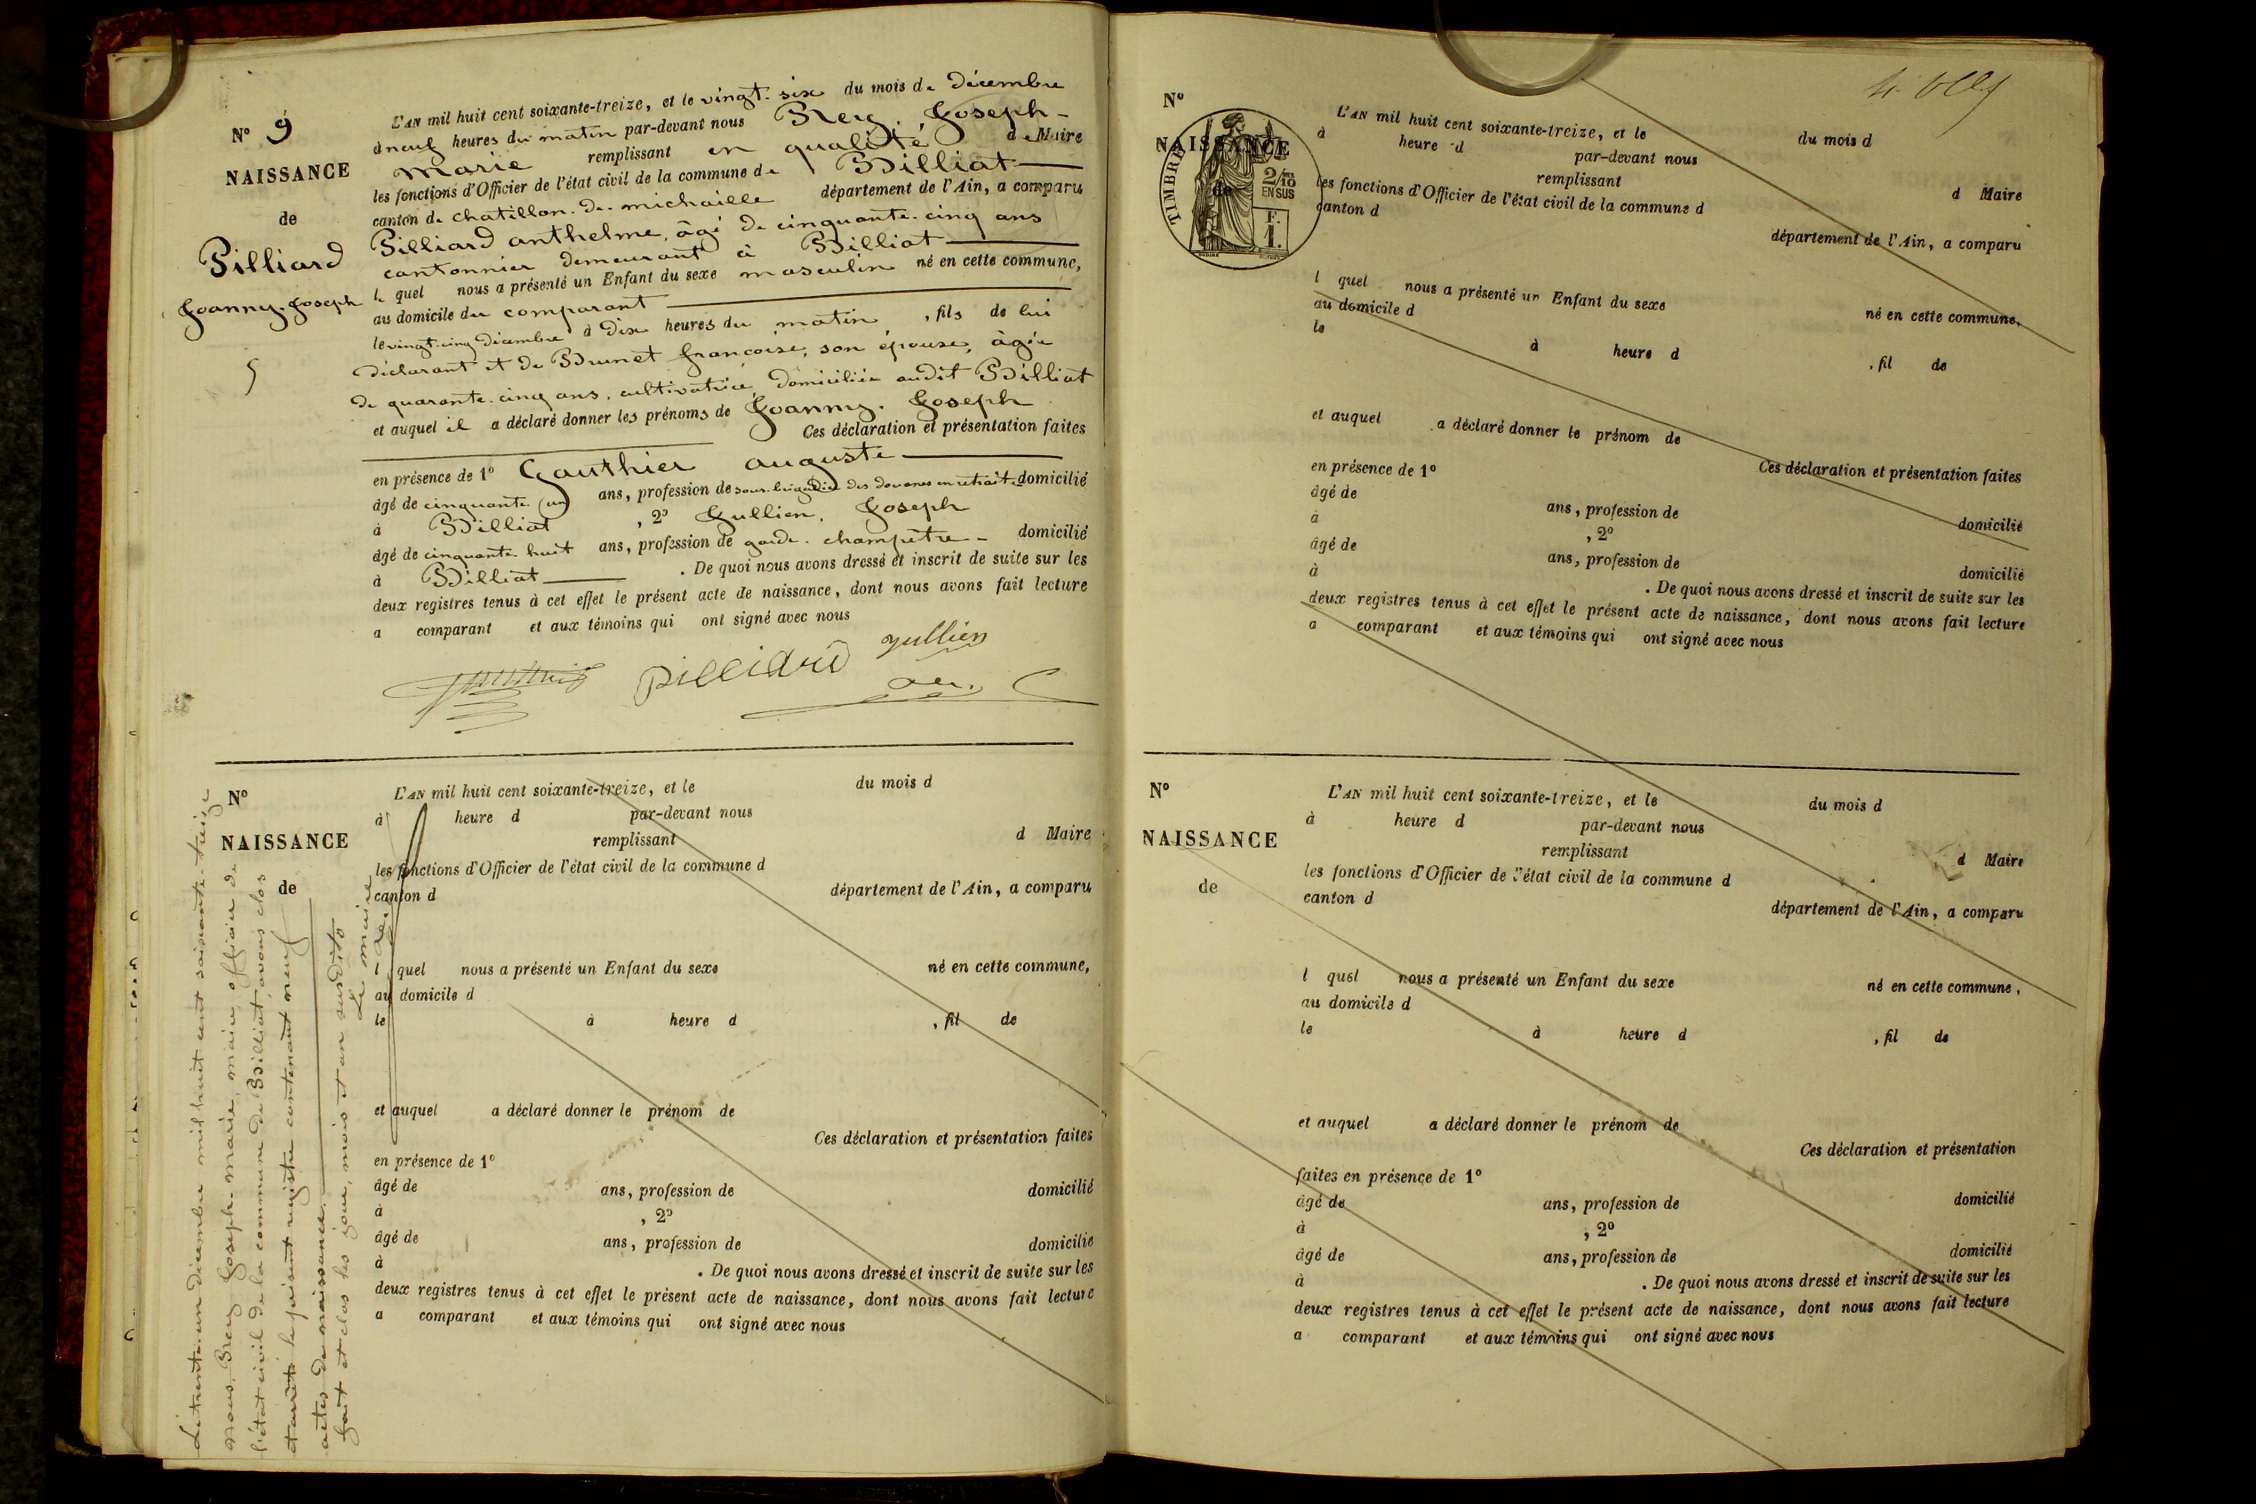 N° 9
NAISSANCE
de
Pilliard
Joanny-Joseph
5
L'AN mil huit cent soixante-treize, et le vingt-six du mois de décembre
à neuf heures du matin par-devant nous Brey, Joseph-
marie remplissant en qualité de Maire
les fonctions d'Officier de l'état civil de la commune de Billiat
canton de chatillon-de-michaille département de l'Ain, a comparu
Pilliard anthelme, âgé de cinquante-cinq ans
cantonnier demeurant à Billiat
le quel nous a présenté un Enfant du sexe masculin né en cette commune,
au domicile du comparant
le vingt-cinq décembre à dix heures du matin, fils de lui
déclarant et de Brunet françoise, son épouse, âgée
de quarante-cinq ans, cultivatrice, domiciliée audit Billiat
et auquel il a déclaré donner les prénoms de Joanny-Joseph
Ces déclaration et présentation faites
en présence de 1° Gauthier auguste
âgé de cinquante un ans, profession de sous-brigadier des douanes en retraite domicilié
à Billiat, 2° Gullien, Joseph
âgé de cinquante-huit ans, profession de garde-champêtre domicilié
à Billiat. De quoi nous avons dressé et inscrit de suite sur les
deux registres tenus à cet effet le présent acte de naissance, dont nous avons fait lecture
a comparant et aux témoins qui ont signé avec nous
Pilliard gullien
N°
NAISSANCE
de
L'AN mil huit cent soixante-treize, et le du mois d
à heure d par-devant nous
remplissant d Maire
les fonctions d'Officier de l'état civil de la commune d
canton d département de l'Ain, a comparu
l quel nous a présenté un Enfant du sexe né en cette commune,
au domicile d
le à heure d , fil de
et auquel a déclaré donner le prénom de
Ces déclaration et présentation faites
en présence de 1°
âgé de ans, profession de domicilié
à , 2°
âgé de ans, profession de domicilié
à . De quoi nous avons dressé et inscrit de suite sur les
deux registres tenus à cet effet le présent acte de naissance, dont nous avons fait lecture
a comparant et aux témoins qui ont signé avec nous
Le trente-un décembre mil huit cent soixante-treize
nous, Brey Joseph-marie, maire, officier de
l'état civil de la commune de Billiat, avons clos
et arrêté le présent registre contenant neuf
actes de naissance
fait et clos les jour, mois et an susdits
Le maire
N°
NAISSANCE
de
TIMBRE
2/10
EN SUS
F.
1.
L'AN mil huit cent soixante-treize, et le du mois d
à heure d par-devant nous
remplissant d Maire
les fonctions d'Officier de l'état civil de la commune d
canton d département de l'Ain, a comparu
l quel nous a présenté un Enfant du sexe né en cette commune,
au domicile d
le à heure d , fil de
et auquel a déclaré donner le prénom de
Ces déclaration et présentation faites
en présence de 1°
âgé de ans, profession de domicilié
à , 2°
âgé de ans, profession de domicilié
à . De quoi nous avons dressé et inscrit de suite sur les
deux registres tenus à cet effet le présent acte de naissance, dont nous avons fait lecture
a comparant et aux témoins qui ont signé avec nous
N°
NAISSANCE
de
L'AN mil huit cent soixante-treize, et le du mois d
à heure d par-devant nous
remplissant d Maire
les fonctions d'Officier de l'état civil de la commune d
canton d département de l'Ain, a comparu
l quel nous a présenté un Enfant du sexe né en cette commune,
au domicile d
le à heure d , fil de
et auquel a déclaré donner le prénom de
Ces déclaration et présentation
faites en présence de 1°
âgé de ans, profession de domicilié
à , 2°
âgé de ans, profession de domicilié
à . De quoi nous avons dressé et inscrit de suite sur les
deux registres tenus à cet effet le présent acte de naissance, dont nous avons fait lecture
a comparant et aux témoins qui ont signé avec nous